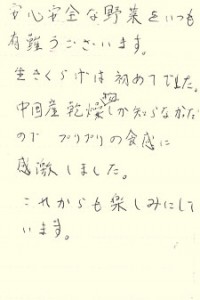 安心安全な野菜をいつも
有難うございます。
生きくらげは初めてでした。
中国産乾燥しか知らなかった
ので プリプリの食感に
感激しました。
これからも楽しみにして
います。